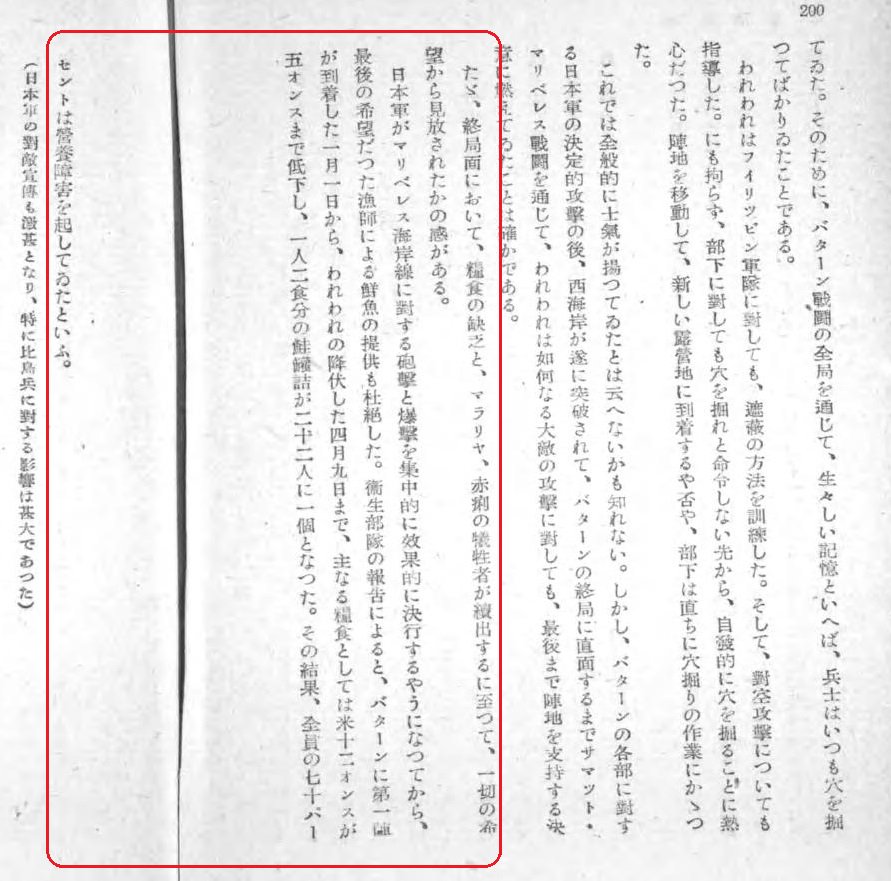 200
てゐた。そのために、バターン戰鬪の全局を通じて、生々しい記憶といへば、兵士はいつも穴を掘
つてばかりゐたことである。
われわれはフイリツピン軍隊に對しても、遮蔽の方法を訓練した。そして、對空攻擊についても
指導した。にも拘らず、部下に對しても穴を掘れと命令しない先から、自發的に穴を掘ることに熱
心だつた。陣地を移動して、新しい露營地に到着するや否や、部下は直ちに穴掘りの作業にかゝつ
た。
これでは全般的に士氣が揚つてゐたとは云へないかも知れない。しかし、バターンの各部に對す
る日本軍の決定的攻擊の後、西海岸が遂に突破されて、バターンの終局に直面するまでサマツト・
マリベレス戰鬪を通じて、われわれは如何なる大敵の攻擊に對しても、最後まで陣地を支持する決
意に燃えてゐたことは確かである。
たゞ、終局面において、糧食の缺乏と、マラリヤ、赤痢の犧牲者が續出するに至つて、一切の希
望から見放されたかの感がある。
日本軍がマリベレス海岸線に對する砲擊と爆擊を集中的に效果的に決行するやうになつてから、
最後の希望だつた漁師による鮮魚の提供も杜絕した。衞生部隊の報吿によると、バターンに第一陣
が到着した一月一日から、われわれの降伏した四月九日まで、主なる糧食としては米十二オンスが
五オンスまで低下し、一人二食分の鮭罐詰が二十二人に一個となつた。その結果、全員の七十パー
セントは營養障害を起してゐたといふ。
（日本軍の對敵宣傳も激甚となり、特に比島兵に對する影響は甚大であつた）